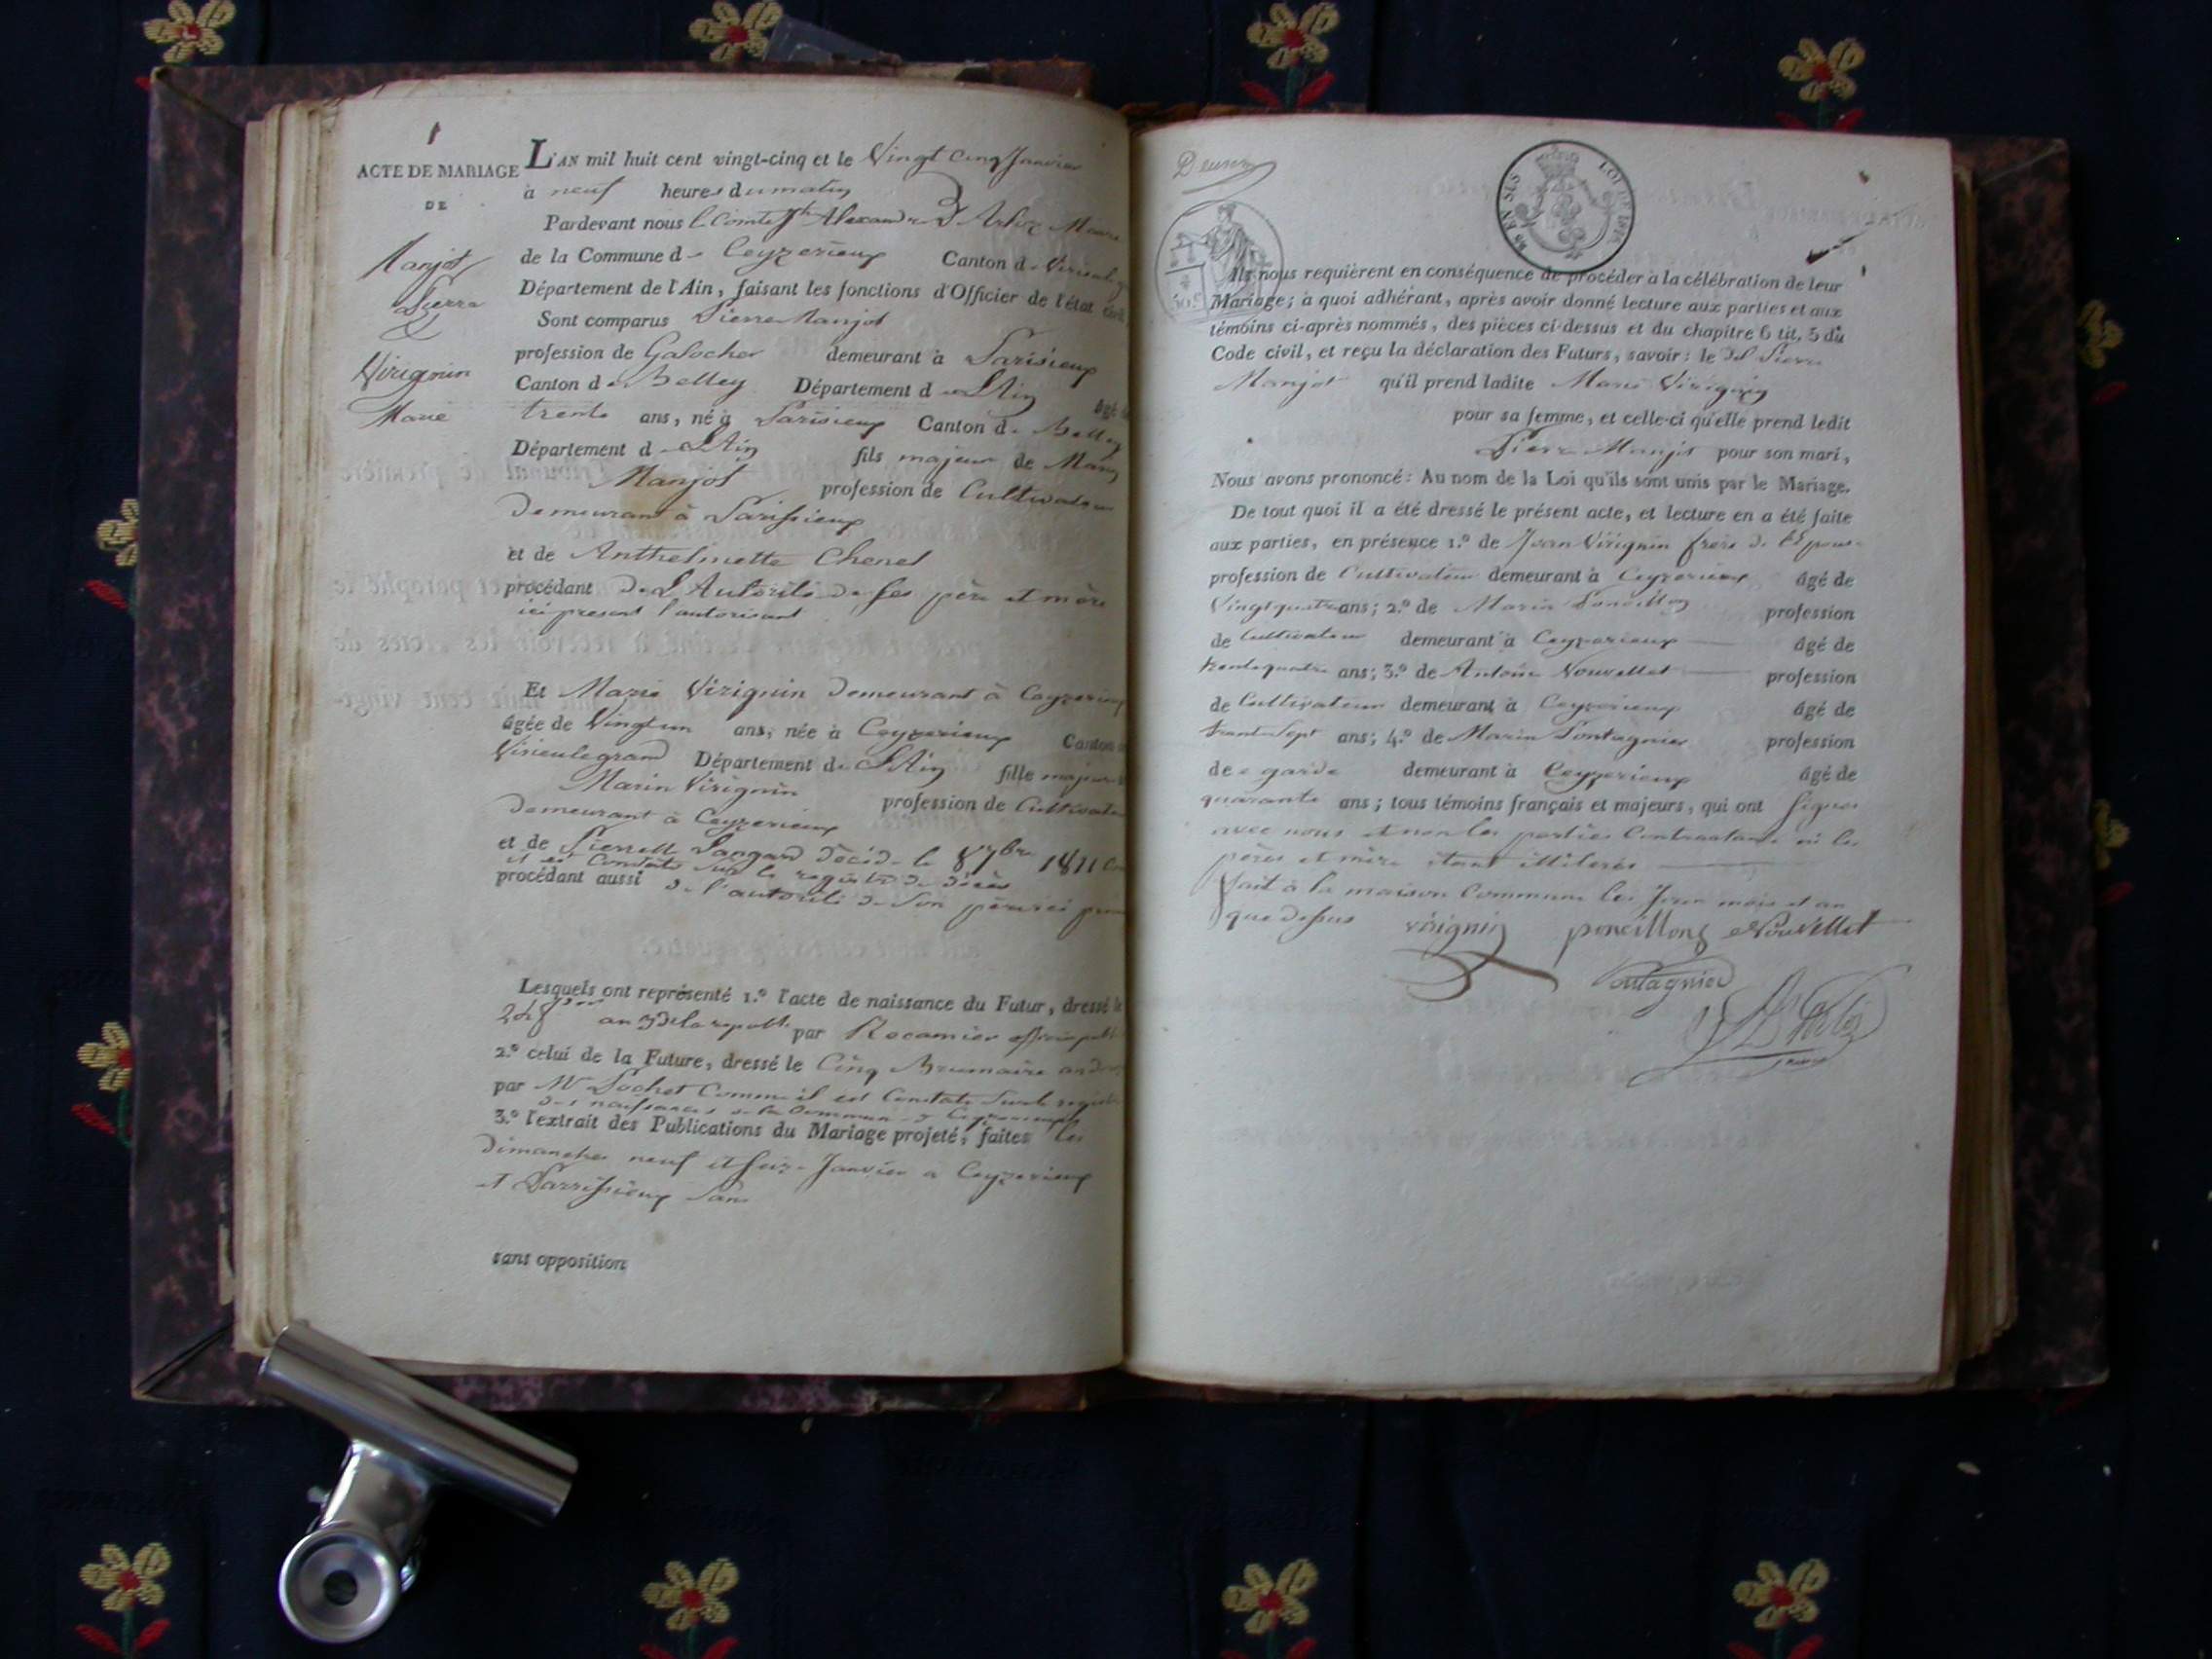 ACTE DE MARIAGE
DE
Manjot
Pierre
&
Virignin
Marie
L'AN mil huit cent vingt-cinq et le Vingt Cinq Janvier
à neuf heures du matin
Pardevant nous le Comte Jh Alexandre D'Arloz Maire
de la Commune de Ceyzerieux Canton de Virieule
Département de l'Ain, faisant les fonctions d'Officier de l'état civil
Sont comparus Pierre Manjot
profession de Galocher demeurant à Parisieux
Canton de Belley Département de L'Ain âgé
trente ans, né à Parisieux Canton de Belley
Département de L'Ain fils majeur de
Manjot profession de Cultivateur
Demeurant à Parissieux
et de Anthelmette Chenel
procédant De L'Autorité de ses père et mère
ici present l'autorisant
Et Marie Virignin Demeurant à Ceyzerieux
âgée de Vingt un ans, née à Ceyzerieux Canton
Virieulegrand Département de L'Ain fille majeure
Marin Virignin profession de Cultivateur
Demeurant à Ceyzerieux
et de Pierrette Pangard Décédé le 8 7bre 1811
il est Constaté sur le registre de décès
procédant aussi de l'autorité de son père ici
Lesquels ont représenté 1.º l'acte de naissance du Futur, dressé le
an 3 de la republ. par Recamier officier publ
2.º celui de la Future, dressé le Cinq Brumaire an
par Mr Pochet Comme il est Constaté sur le registre
des naissances de la Commune de Ceyzerieux
3.º l'extrait des Publications du Mariage projeté, faites les
Dimanches neuf et seize Janvier à Ceyzerieux
et Parrissieux Sans
sans opposition
LOI DE 1816
50c
Ils nous requièrent en conséquence de procéder à la célébration de leur
Mariage; à quoi adhérant, après avoir donné lecture aux parties et aux
témoins ci-après nommés, des pièces ci-dessus et du chapitre 6 tit. 5 du
Code civil, et reçu la déclaration des Futurs, savoir: le dit Pierre
Manjot qu'il prend ladite Marie Virignin
pour sa femme, et celle-ci qu'elle prend ledit
Pierre Manjot pour son mari,
Nous avons prononcé: Au nom de la Loi qu'ils sont unis par le Mariage.
De tout quoi il a été dressé le présent acte, et lecture en a été faite
aux parties, en présence 1.º de Jean Virignin frère de L'Epouse
profession de Cultivateur demeurant à Ceyzerieux âgé de
Vingt quatre ans; 2.º de Marin Poncillon profession
de Cultivateur demeurant à Ceyzerieux âgé de
trente quatre ans; 3.º de Antoine Nouvellet profession
de Cultivateur demeurant à Ceyzerieux âgé de
trente Sept ans; 4.º de Marin Pontagnier profession
de garde demeurant à Ceyzerieux âgé de
quarante ans; tous témoins français et majeurs, qui ont signés
avec nous et non les parties Contractantes ni les
pères et mère étant illiterés
fait à la maison Commune les Jour mois et an
que dessus virignin poncillong Nouvellet
Pontagnier